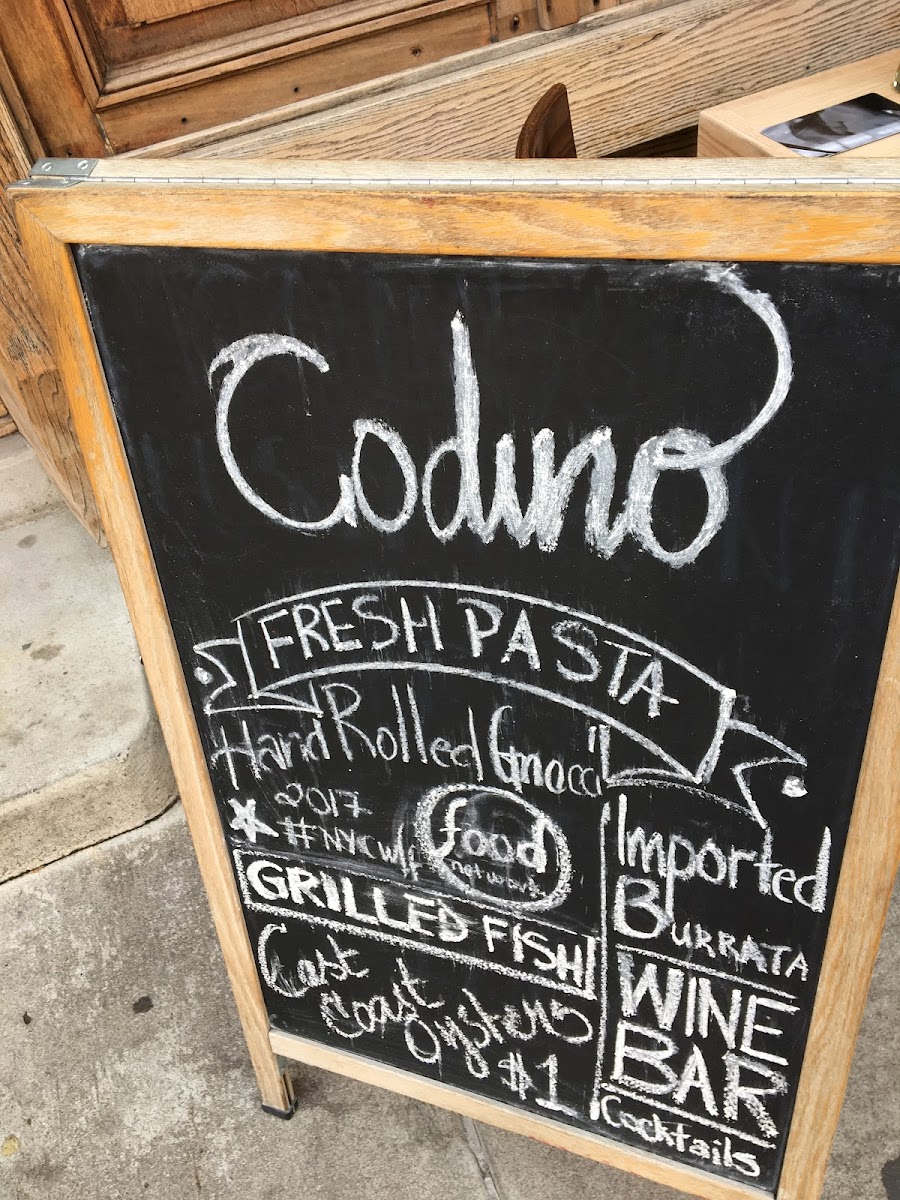 Codino
FRESH PASTA
Hand Rolled Gnocci
2017
#NYCWff
food
network
GRILLED FISH
East
Coast
Oysters
$1
Imported
BURRATA
WINE
BAR
Cocktails